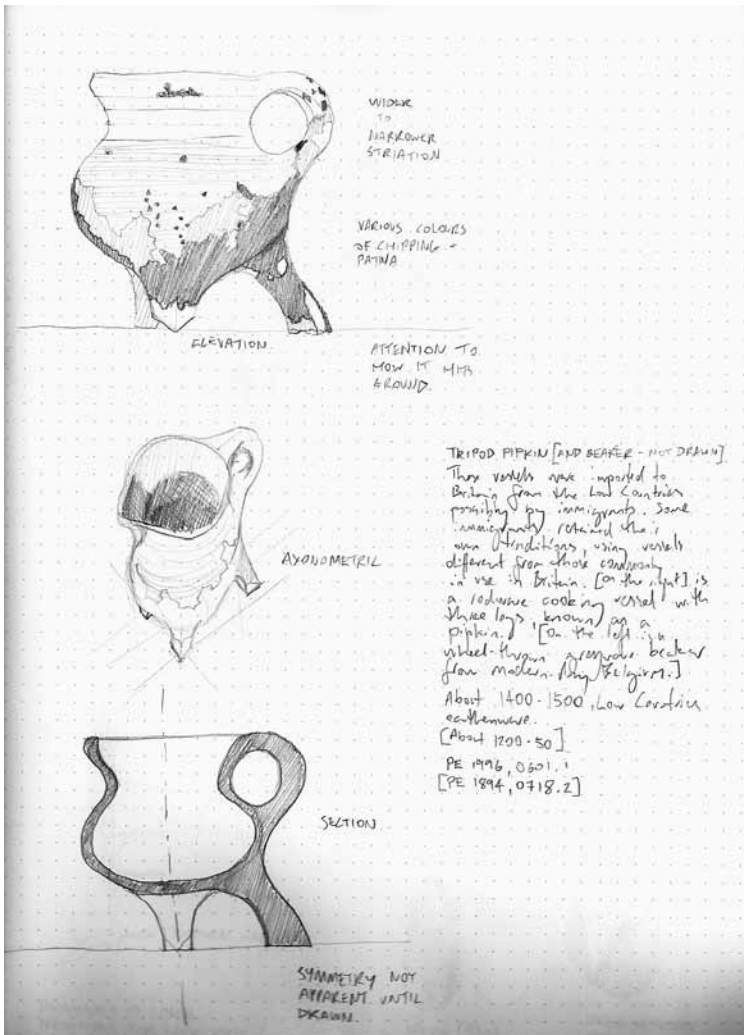 WIDER
TO
NARROWER
STRIATION
VARIOUS COLOURS
OF CHIPPING -
PATINA
ELEVATION
ATTENTION TO
HOW IT HITS
GROUND.
TRIPOD PIPKIN [AND BEAKER - NOT DRAWN]
These vessels were imported to
Britain from the Low Countries
possibly by immigrants. Some
immigrants retained their
own traditions, using vessels
different from those commonly
in use in Britain. [On the right] is
a redware cooking vessel with
three legs, known as a
pipkin. [On the left is a
wheel-thrown greyware beaker
from modern-day Belgium.]
About 1400-1500, Low Countries
earthenware.
[About 1200-50]
PE 1996, 0601.1
[PE 1894, 0718.2]
AXONOMETRIC
SECTION
SYMMETRY NOT
APPARENT UNTIL
DRAWN.